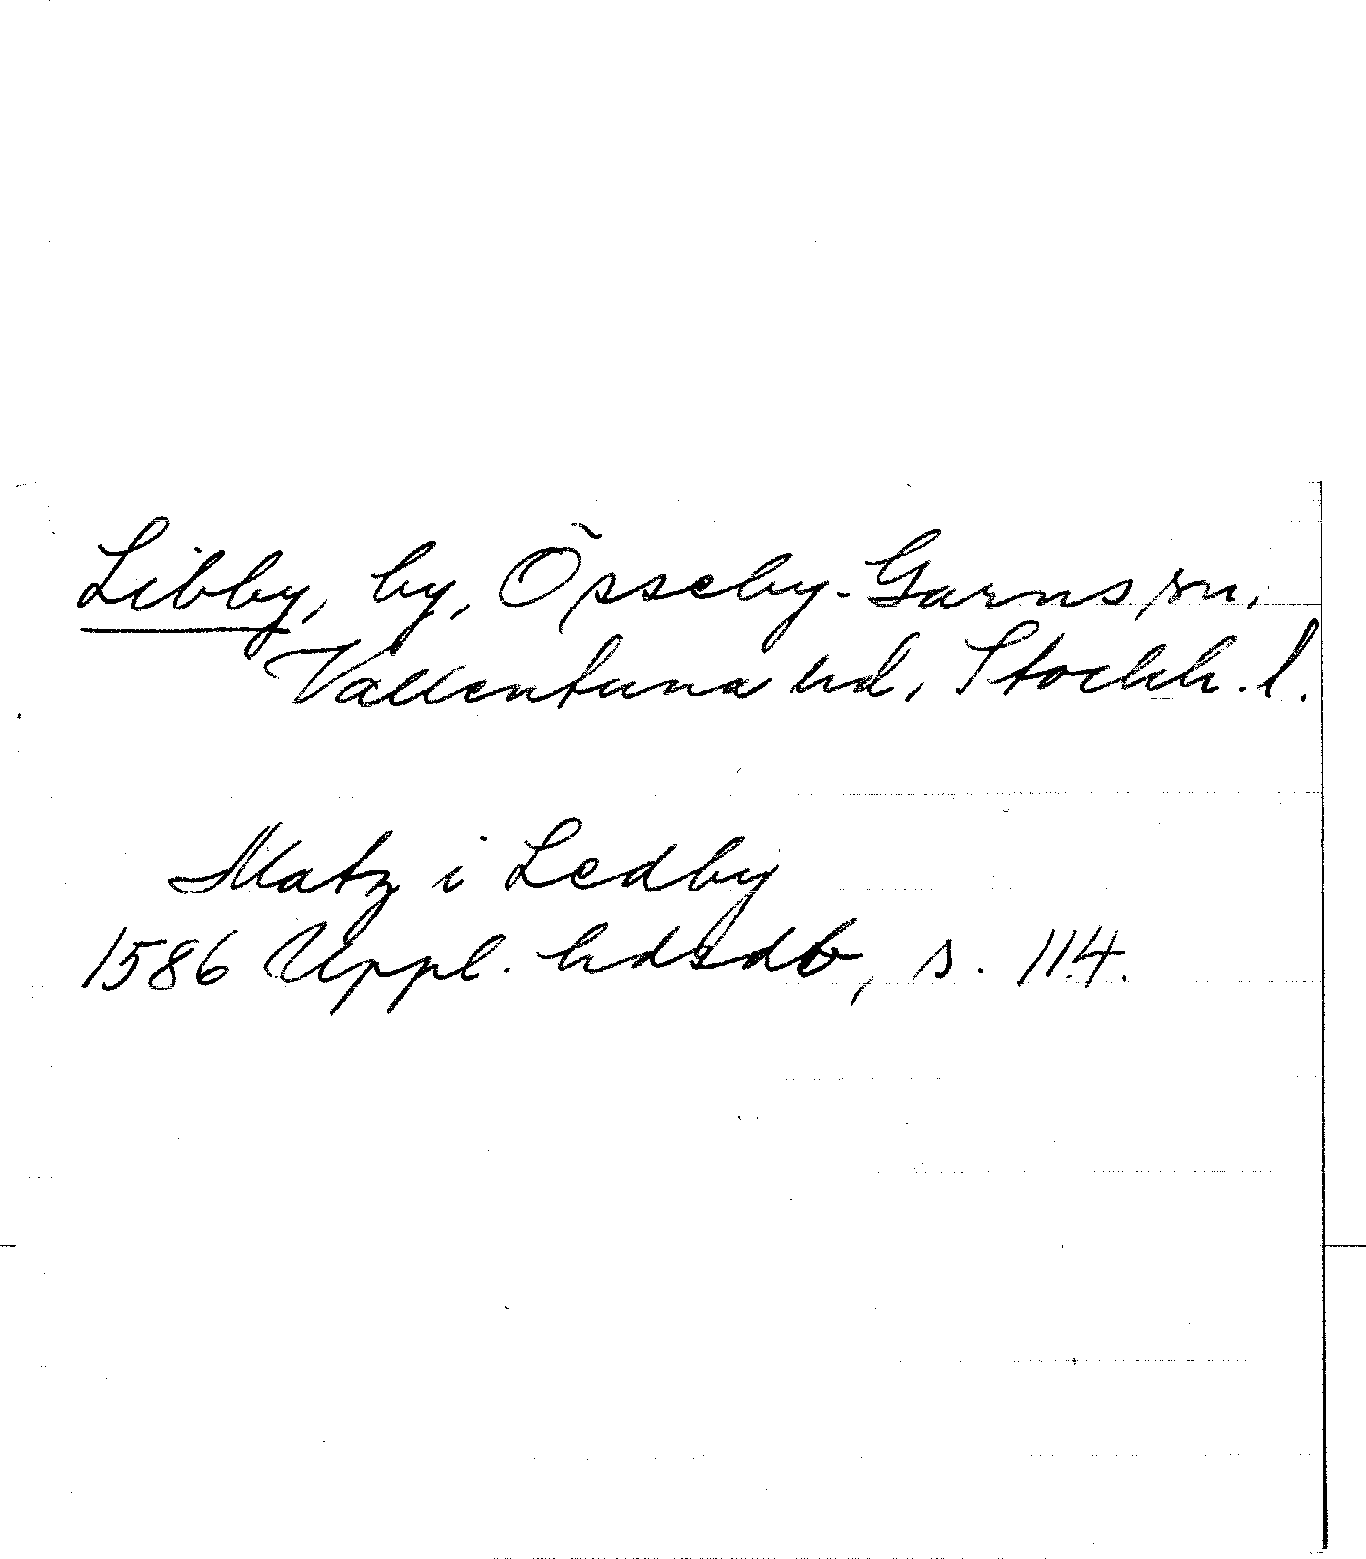 Libby, by, Össeby-Garns sn,
Vallentuna hd, Stockh. l.
Matz i Ledby
1586 Uppl. hdsdb, s. 114.